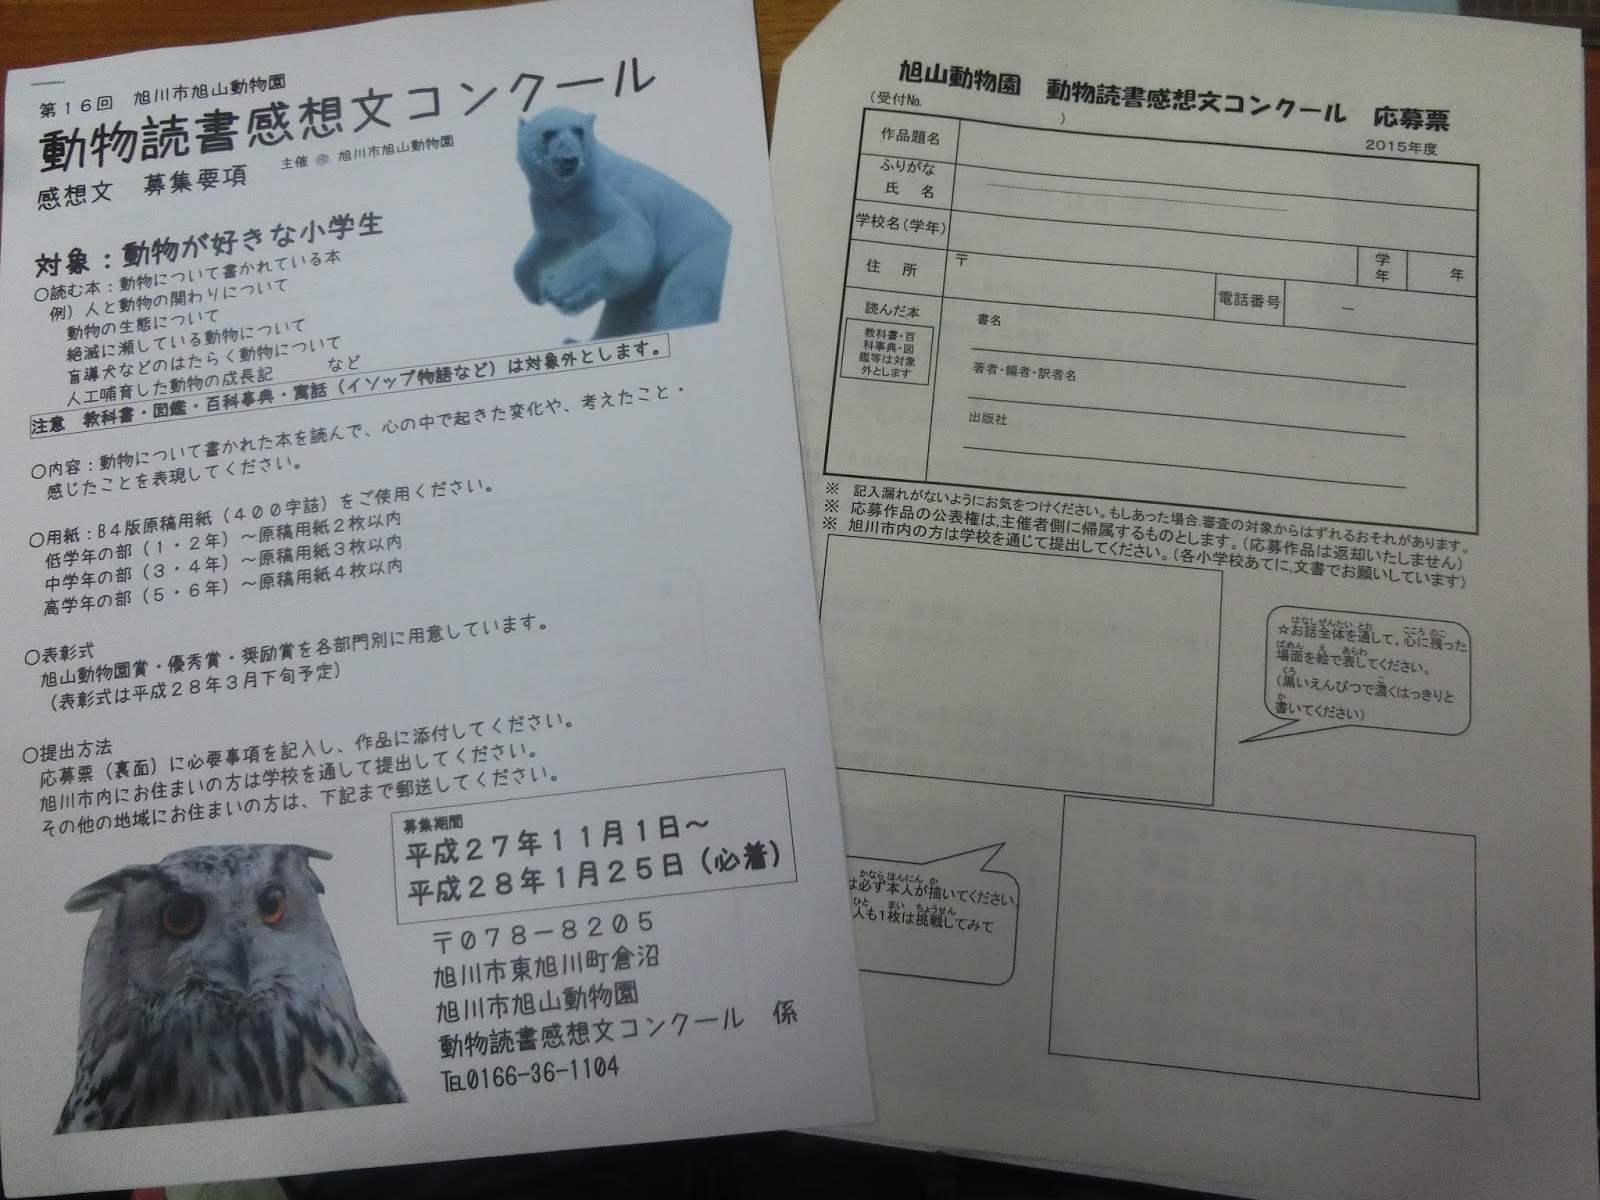 第16回 旭川市旭山動物園
動物読書感想文コンクール
感想文 募集要項 主催 旭川市旭山動物園
対象:動物が好きな小学生
○読む本:動物について書かれている本
例)人と動物の関わりについて
動物の生態について
絶滅に瀕している動物について
盲導犬などのはたらく動物について
人工哺育した動物の成長記 など
注意 教科書・図鑑・百科事典・寓話(イソップ物語など)は対象外とします。
○内容:動物について書かれた本を読んで、心の中で起きた変化や、考えたこと・
感じたことを表現してください。
○用紙:B4版原稿用紙(400字詰)をご使用ください。
低学年の部(1・2年)~原稿用紙2枚以内
中学年の部(3・4年)~原稿用紙3枚以内
高学年の部(5・6年)~原稿用紙4枚以内
○表彰式
旭山動物園賞・優秀賞・奨励賞を各部門別に用意しています。
(表彰式は平成28年3月下旬予定)
○提出方法
応募票(裏面)に必要事項を記入し、作品に添付してください。
旭川市内にお住まいの方は学校を通して提出してください。
その他の地域にお住まいの方は、下記まで郵送してください。
募集期間
平成27年11月1日~
平成28年1月25日(必着)
〒078-8205
旭川市東旭川町倉沼
旭川市旭山動物園
動物読書感想文コンクール 係
℡0166-36-1104
旭山動物園 動物読書感想文コンクール 応募票
(受付№ )
2015年度
作品題名
ふりがな
氏 名
学校名(学年)
学年 年
住 所 〒
電話番号 ―
読んだ本
教科書・百
科事典・図
鑑等は対象
外とします
書名
著者・編者・訳者名
出版社
※ 記入漏れがないようにお気をつけください。もしあった場合、審査の対象からはずれるおそれがあります。
※ 応募作品の公表権は、主催者側に帰属するものとします。(応募作品は返却いたしません)
※ 旭川市内の方は学校を通じて提出してください。(各小学校あてに、文書でお願いしています)
はなしぜんたい とお こころ のこ
☆お話全体を通して、心に残った
ばめん え あらわ
場面を絵で表してください。
くろ こ
(黒いえんぴつで濃くはっきりと
か
書いてください)
かなら ほんにん か
は必ず本人が描いてください。
ひと まい ちょうせん
人も1枚は挑戦してみて